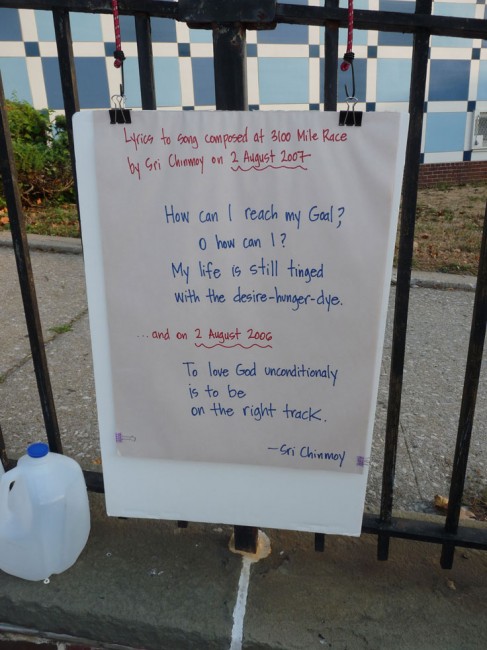 Lyrics to song composed at 3100 Mile Race
by Sri Chinmoy on 2 August 2007
How can I reach my Goal?
O how can I?
My life is still tinged
with the desire-hunger-dye.
...and on 2 August 2006
To love God unconditionaly
is to be
on the right track.
-Sri Chinmoy